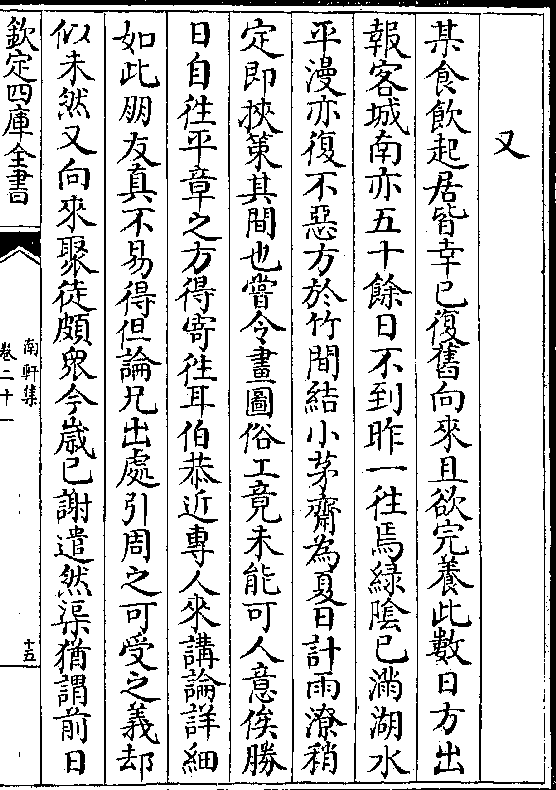 又
某食飲起居皆幸已復舊向來且欲完養此數日方出
報客城南亦五十餘日不到昨一徃焉緑隂已滿湖水
平漫亦復不惡方於竹間結小茅齋為夏日計雨潦稍
定即挾策其間也嘗令畫圖俗工竟未能可人意俟勝
日自徃平章之方得寄徃耳伯恭近專人來講論詳細
如此朋友真不易得但論兄出處引周之可受之義却
似未然又向來聚徒頗衆今嵗已謝遣然渠猶謂前日
欽定四庫全書
南軒集
卷二十一
十五